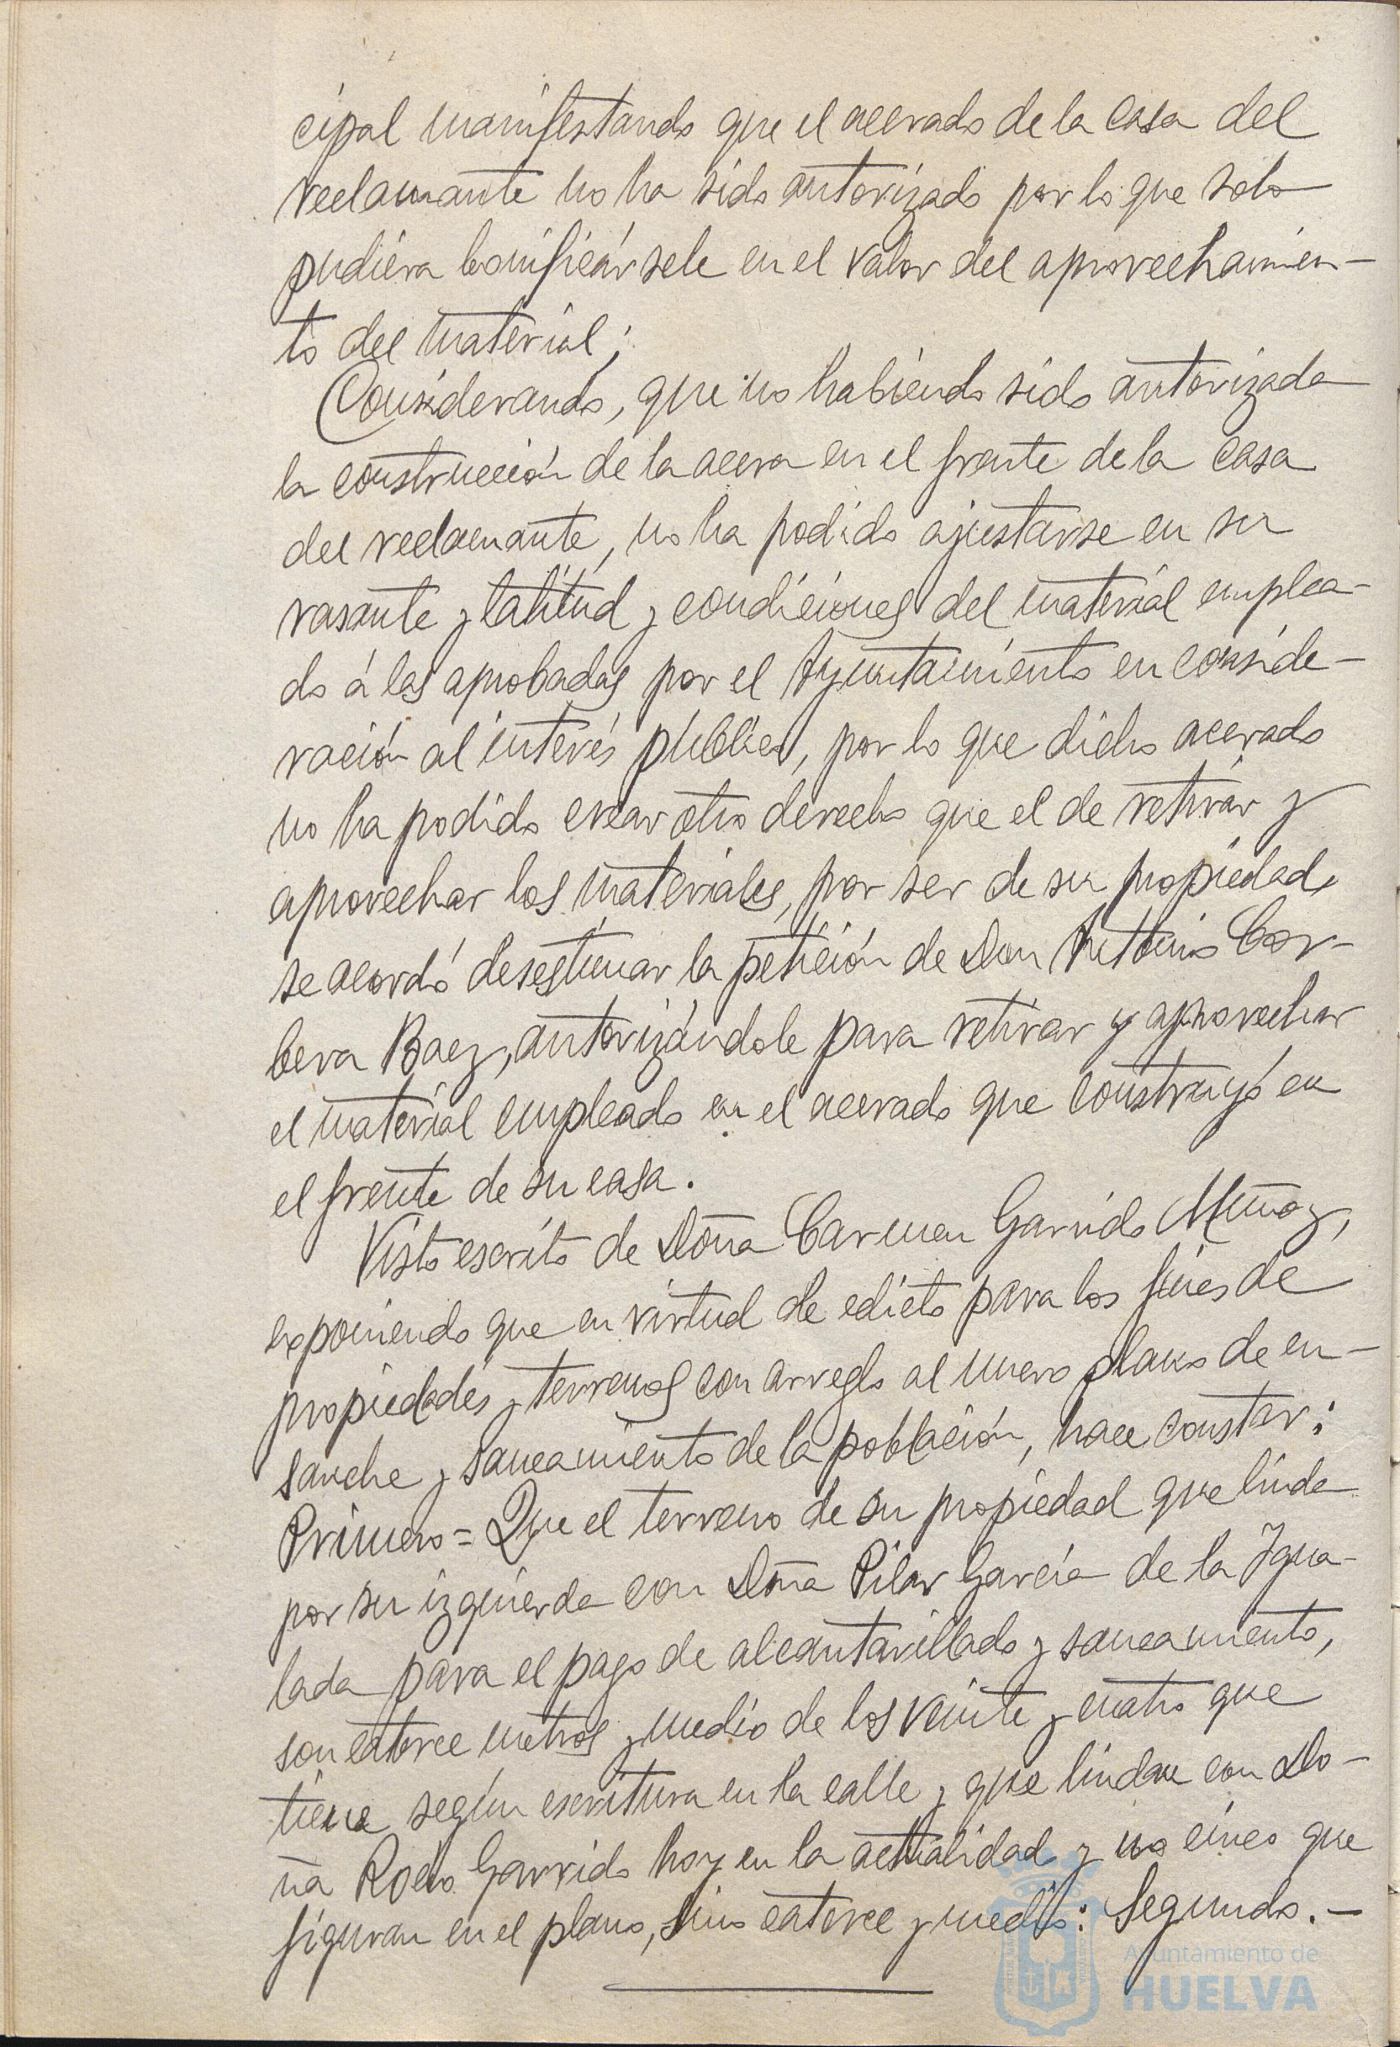 cipal manifestando que el acerado de la casa del
reclamante no ha sido autorizado por lo que solo
pudiera bonificársele en el valor del aprovechamien-
to del material;
Considerando, que no habiendo sido autorizada
la construcción de la acera en el frente de la casa
del reclamante, no ha podido ajustarse en su
rasante y latitud y condiciones del material emplea-
do á las aprobadas por el Ayuntamiento en conside-
ración al interés público, por lo que dicho acerado
no ha podido crear otro derecho que el de retirar y
aprovechar los materiales, por ser de su propiedad,
se acordó desestimar la petición de Don Antonio Cor-
bera Baez, autorizándole para retirar y aprovechar
el material empleado en el acerado que construyó en
el frente de su casa.
Visto escrito de Doña Carmen Garrido Muñoz,
exponiendo que en virtud de edicto para los fines de
propiedades y terrenos con arreglo al nuevo plano de en-
sanche y saneamiento de la población, hace constar:
Primero = Que el terreno de su propiedad que linda
por su izquierda con Doña Pilar García de la Igua-
lada para el pago de alcantarillado y saneamiento,
son catorce metros y medio de los veinte y cuatro que
tiene según escritura en la calle y que lindan con Do-
ña Rocio Garrido hoy en la actualidad y no cinco que
figuran en el plano, sino catorce y medio: Segundo.-
Ayuntamiento de
HUELVA